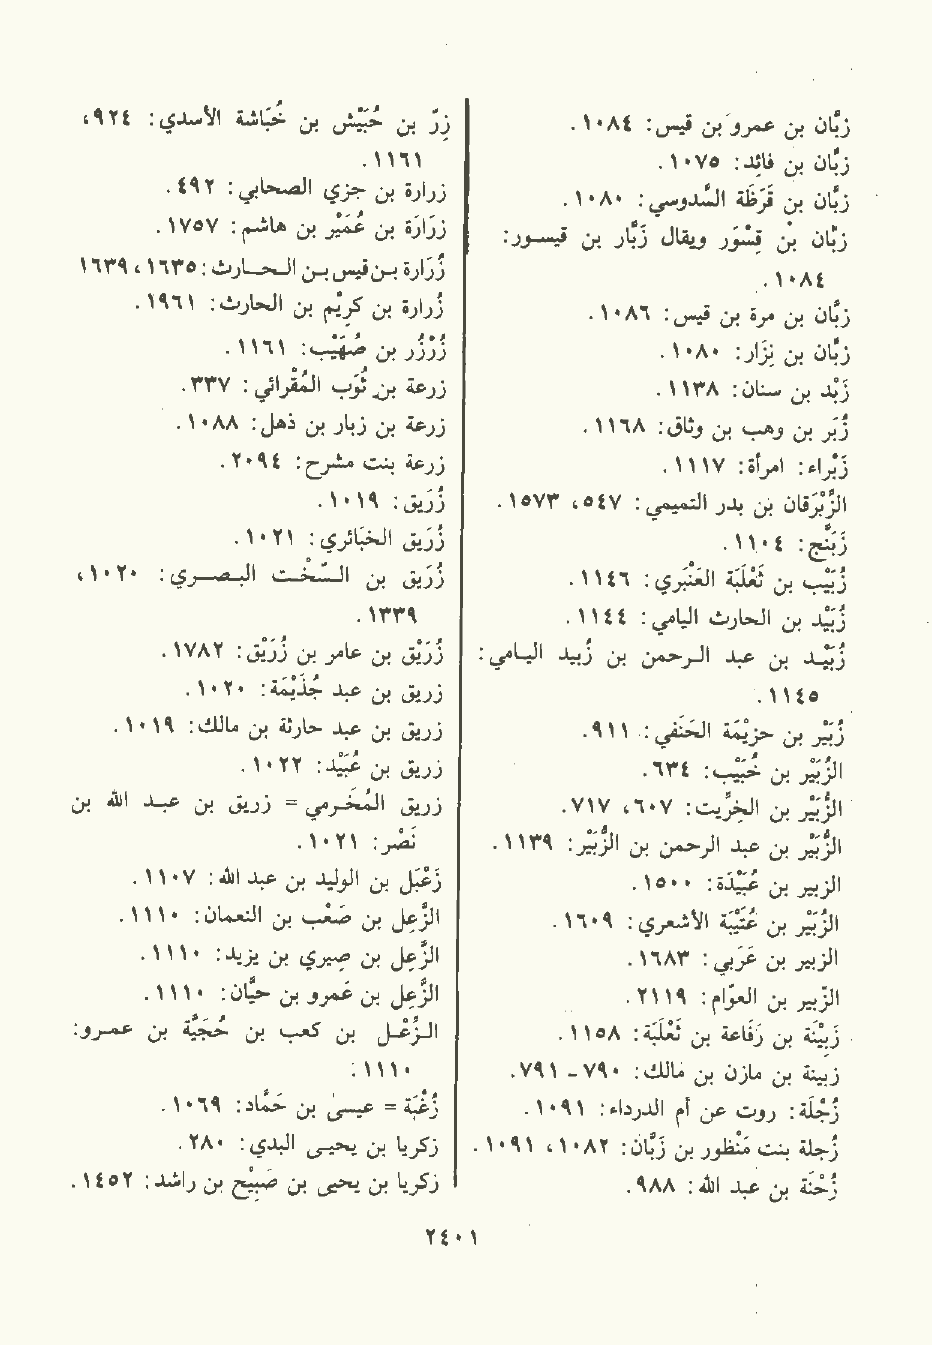 زبَّان بن عمرو بن قيس: ١٠٨٤.
زبَّان بن فائِد: ١٠٧٥.
زبَّان بن قَرَظَة السَّدوسي: ١٠٨٠.
زبَّان بن قِسْوَر ويقال زَبَّار بن قيسور:
١٠٨٤.
زبَّان بن مرة بن قيس: ١٠٨٦.
زبَّان بن نِزَار: ١٠٨٠.
زَبْد بن سنان: ١١٣٨.
زُبَر بن وهب بن وثاق: ١١٦٨.
زَبْراء: امرأة: ١١١٧.
الزِّبْرَقان بن بدر التميمي: ٥٤٧، ١٥٧٣.
زَبَنِّج: ١١٠٤.
زُبَيْب بن ثَعْلَبَة العَنْبَري: ١١٤٦.
زُبَيْد بن الحارث اليامي: ١١٤٤.
زُبَيْد بن عبد الرحمن بن زُبيد اليامي:
١١٤٥.
زُبَيْر بن حزيْمَة الحَنَفي: ٩١١.
الزُبَيْر بن خُبَيْب: ٦٣٤.
الزُّبَيْر بن الخِرِّيت: ٦٠٧، ٧١٧.
الزُّبَيْر بن عبد الرحمن بن الزُّبَيْر: ١١٣٩.
الزبير بن عُبَيْدَة: ١٥٠٠.
الزُبَيْر بن عُتَيْبَة الأشعري: ١٦٠٩.
الزبير بن عَرَبي: ١٦٨٣.
الزّبير بن العوّام: ٢١١٩.
زَبِيْنَة بن رَفَاعة بن ثَعْلَبَة: ١١٥٨.
زبينة بن مازن بن مالك: ٧٩٠ - ٧٩١.
زُجْلَة: روت عن أم الدرداء: ١٠٩١.
زُجلة بنت مَنْظور بن زَبَّان: ١٠٨٢، ١٠٩١.
زُحْنَة بن عبد الله: ٩٨٨.
زِرّ بن حُبَيْش بن خُبَاشة الأسدي: ٩٢٤،
١١٦١.
زرارة بن جزي الصحابي: ٤٩٢.
زرَارَة بن عُمَيْر بن هاشم: ١٧٥٧.
زُرَارة بن قيس بن الحارث: ١٦٣٥، ١٦٣٩
زُرارة بن كَرِيْم بن الحارث: ١٩٦١.
زُرْزُر بن صُهَيْب: ١١٦١.
زرعة بن ثُوَب المُقْرائي: ٣٣٧.
زرعة بن زبار بن ذهل: ١٠٨٨.
زرعة بنت مشرح: ٢٠٩٤.
زُرَيق: ١٠١٩.
زُرَيق الخبَائري: ١٠٢١.
زُرَيق بن السَّخْت البصري: ١٠٢٠،
١٣٣٩.
زُرَيْق بن عامر بن زُرَيْق: ١٧٨٢.
زريق بن عبد جُذَيْمَة: ١٠٢٠.
زريق بن عبد حارثة بن مالك: ١٠١٩.
زريق بن عُبَيْد: ١٠٢٢.
زريق المُخَرمي = زريق بن عبد الله بن
نَصْر: ١٠٢١.
زَعْبَل بن الوليد بن عبد الله: ١١٠٧.
الزَّعِل بن صَعْب بن النعمان: ١١١٠.
الزَّعِل بن صيري بن يزيد: ١١١٠.
الزَّعِل بن عَمرو بن حيَّان: ١١١٠.
الزُعْل بن كعب بن حُجَيَّة بن عمرو:
١١١٠.
زُغْبَة = عيسى بن حَمَّاد: ١٠٦٩.
زكريا بن يحيى البدي: ٢٨٠.
زكريا بن يحيى بن صَبِيْح بن راشد: ١٤٥٢.
٢٤٠١